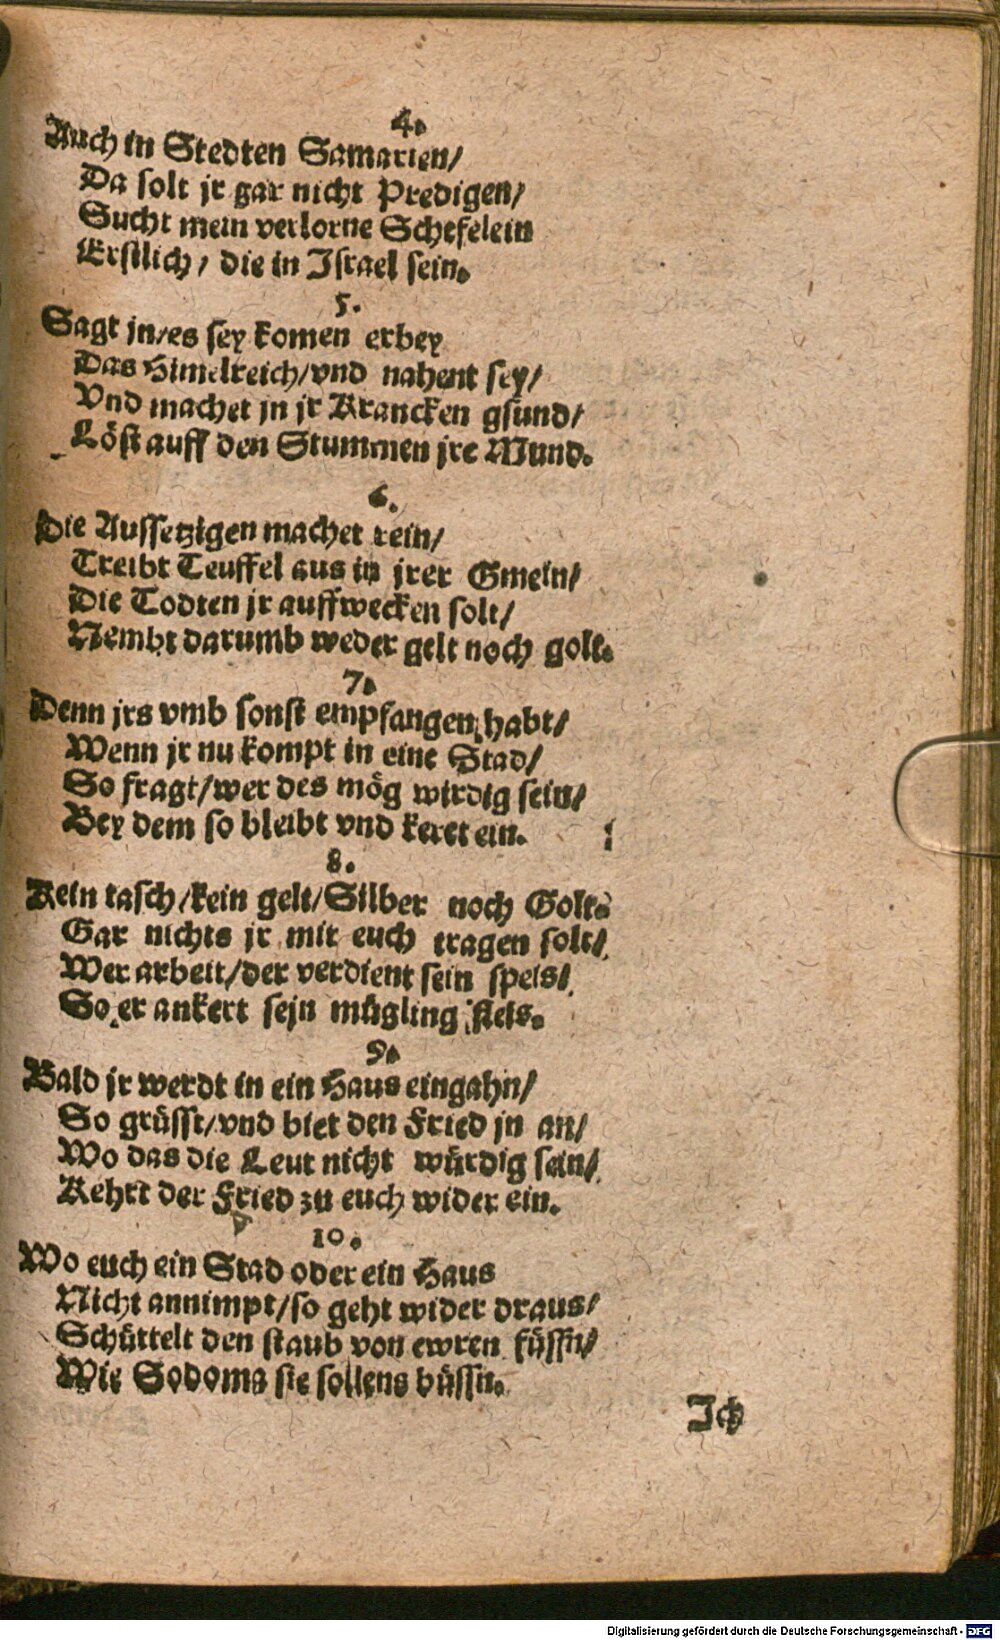 4.
Auch in Stedten Samarien/
Da solt jr gar nicht Predigen/
Sucht mein verlorne Schefelein
Erstlich/ die in Israel sein.
5.
Sagt jn/es sey komen erbey
Das Himelreich/vnd nahent sey/
Vnd machet jn jr Krancken gsund/
Löst auff den Stummen jre Mund.
6.
Die Aussetzigen machet rein/
Treibt Teuffel aus in jrer Gmein/
Die Todten jr auffwecken solt/
Nembt darumb weder gelt noch golt.
7.
Denn jrs vmb sonst empfangen habt/
Wenn jr nu kompt in eine Stad/
So fragt/wer des mög wirdig sein/
Bey dem so bleibt vnd keret ein.
8.
Kein tasch/kein gelt/Silber noch Golt.
Gar nichts jr mit euch tragen solt/
Wer arbeit/der verdient sein speis/
So er ankert sejn mügling fleis.
9.
Bald jr werdt in ein Haus eingahn/
So grüsst/vnd biet den Fried jn an/
Wo das die Leut nicht würdig sein/
Kehrt der Fried zu euch wider ein.
10.
Wo euch ein Stad oder ein Haus
Nicht annimpt/so geht wider draus/
Schüttelt den staub von ewren füssn/
Wie Sodoma sie sollens büssn.
Ich
Digitalisierung gefördert durch die Deutsche Forschungsgemeinschaft - DFG